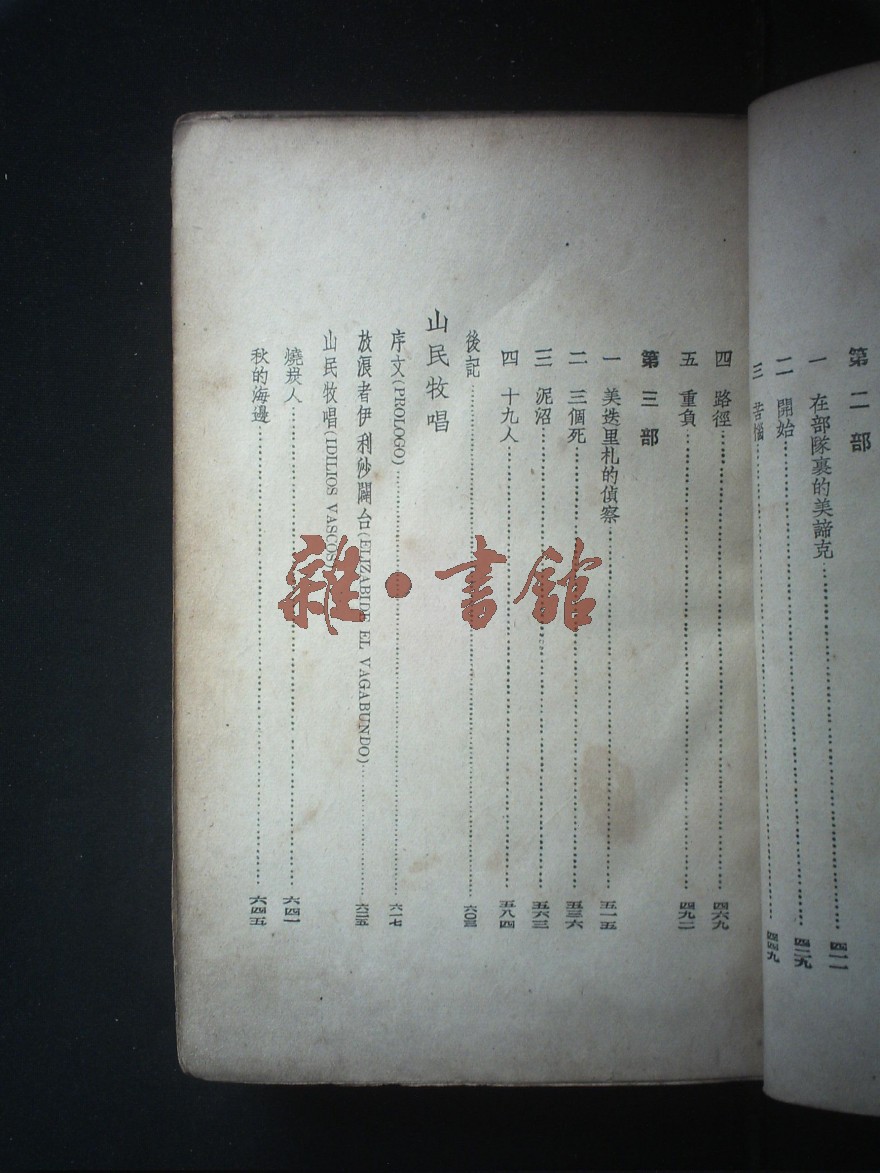 第二部
一 在部隊裏的美諦克……四一一
二 開始……四二九
三 苦惱……四四九
四 路徑……四六九
五 重負……四九二
第三部
一 美迭里札的偵察……五一五
二 三個死……五三六
三 泥沼……五六三
四 十九人……五八四
後記……六〇三
山民牧唱
序文(PROLOGO)……六一七
放浪者伊利沙闢台(ELIZABIDE EL VAGABUNDO)……六二五
山民牧唱(IDILIOS VASCOS)
燒炭人……六四一
秋的海邊……六四五
雜·書館